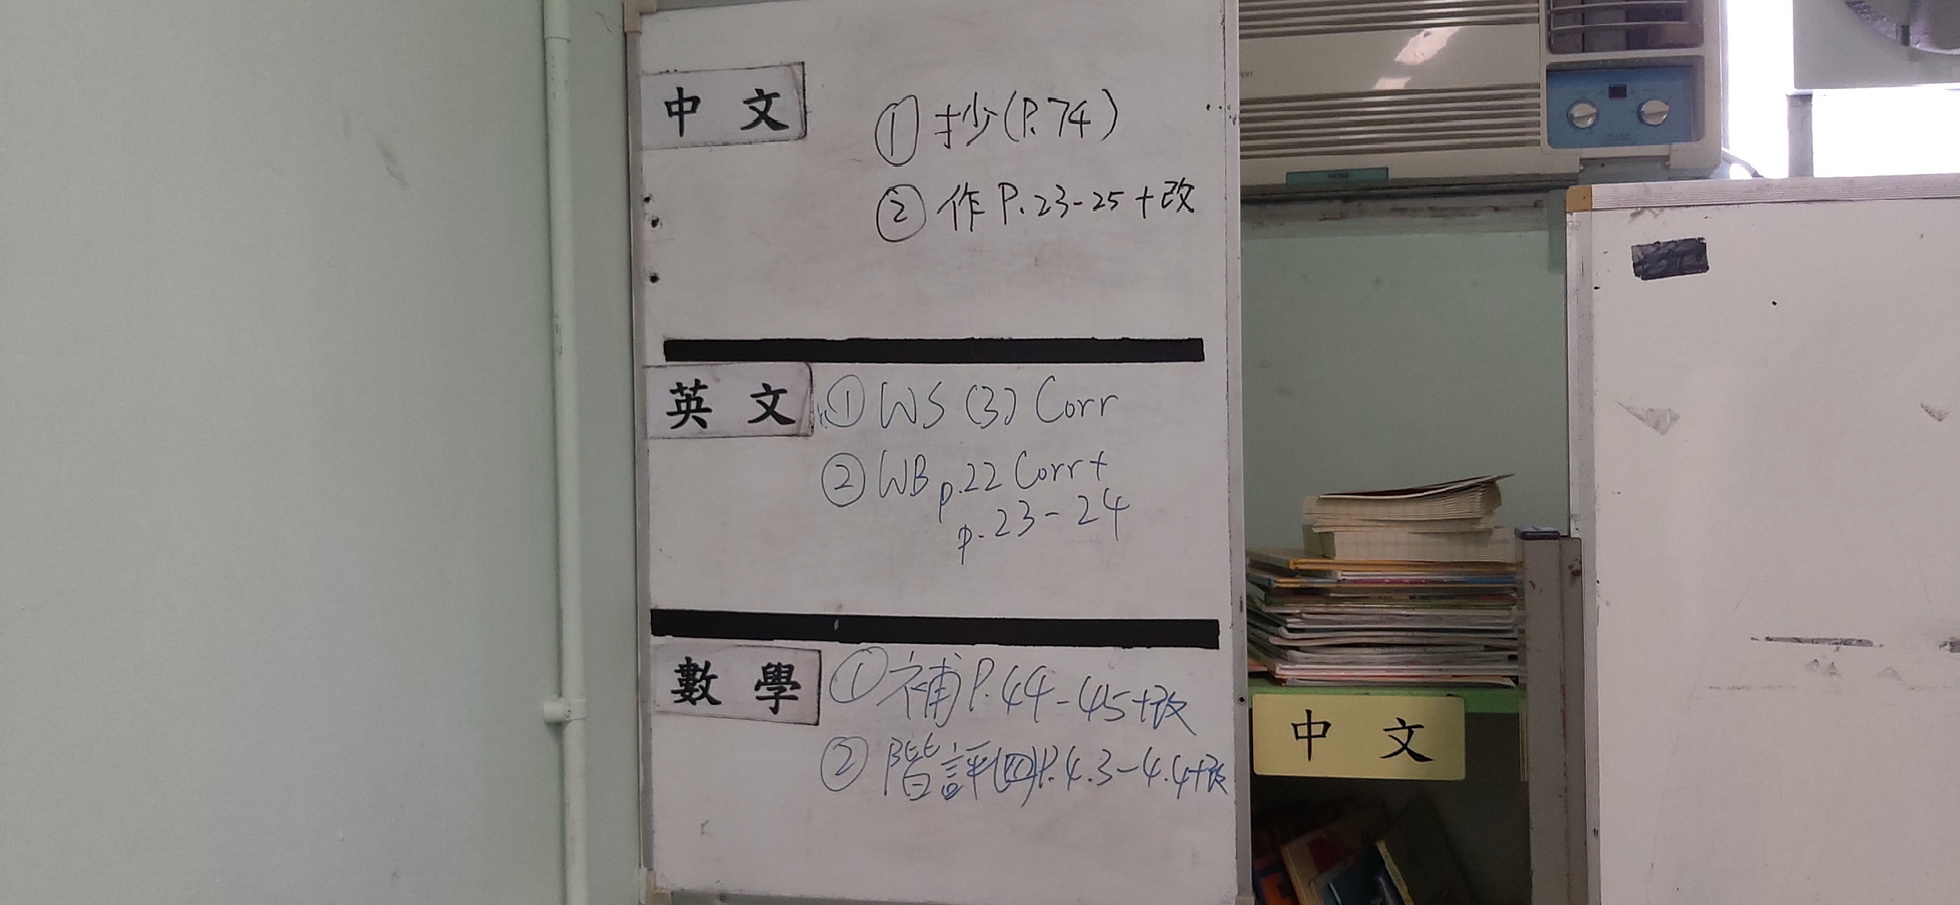 中文
① 抄(P.74)
② 作 P.23-25+改
英文
① WS (3) Corr
② WB p.22 Corr+
p.23-24
數學
① 補 P.44-45+改
② 階評(四)P.4.3-4.4+改
中文